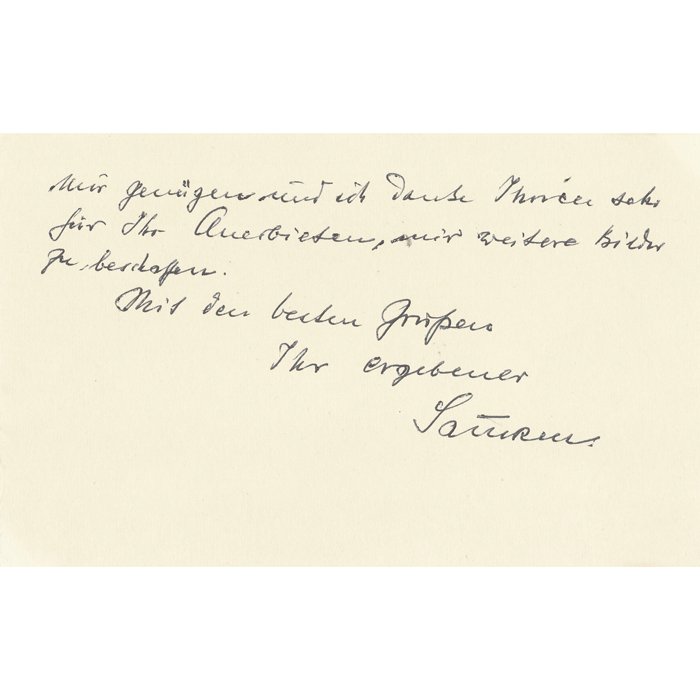 mir genügen und ich danke Ihnen sehr
für Ihr Anerbieten, mir weitere Bilder
zu beschaffen.
Mit den besten Grüßen
Ihr ergebener